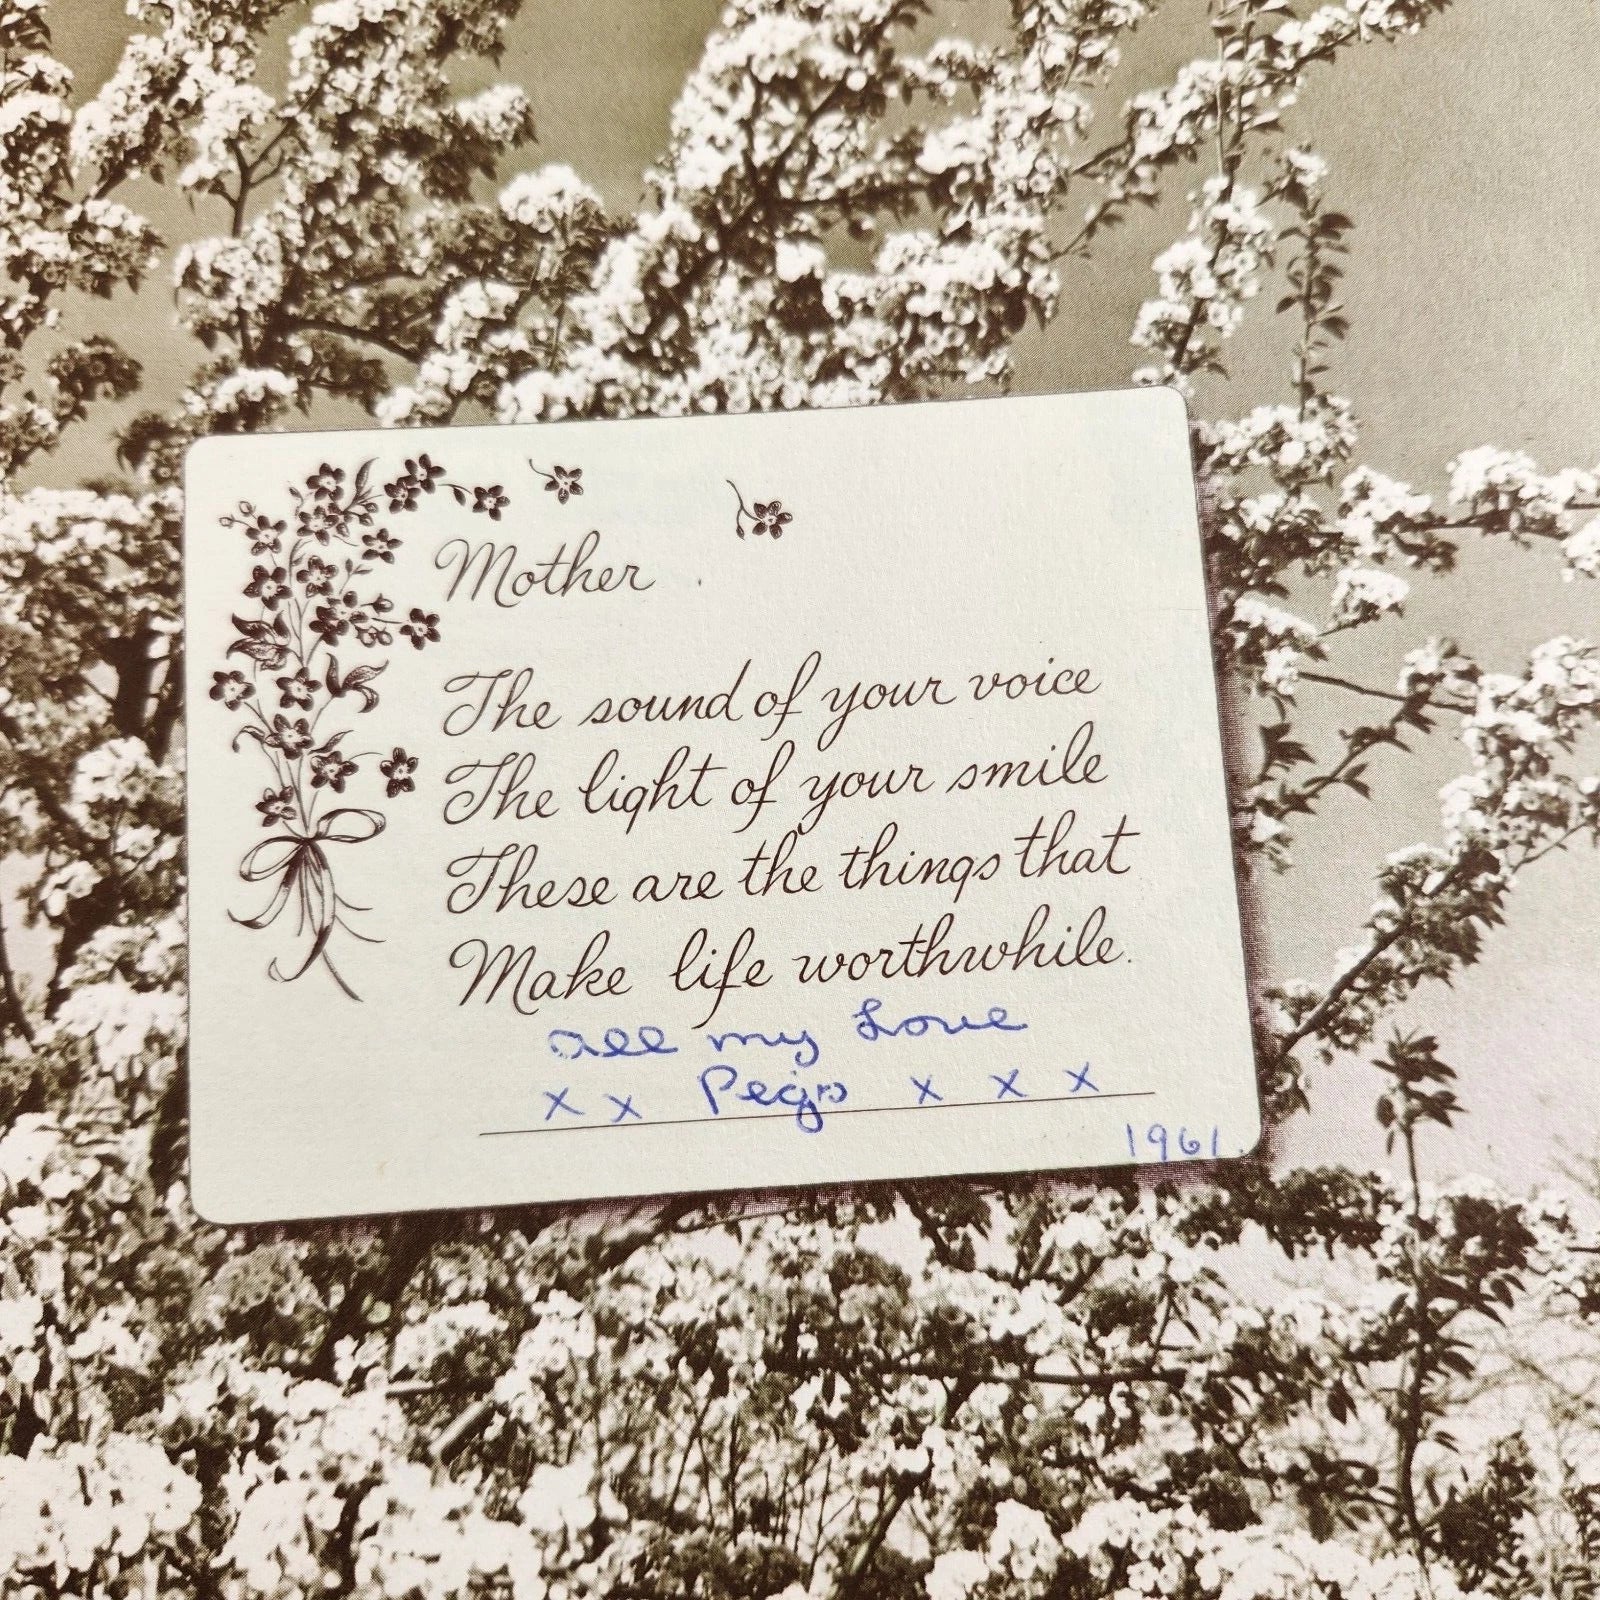 Mother
The sound of your voice
The light of your smile
These are the things that
Make life worthwhile.
all my Love
x x Pegs x x x
1961.